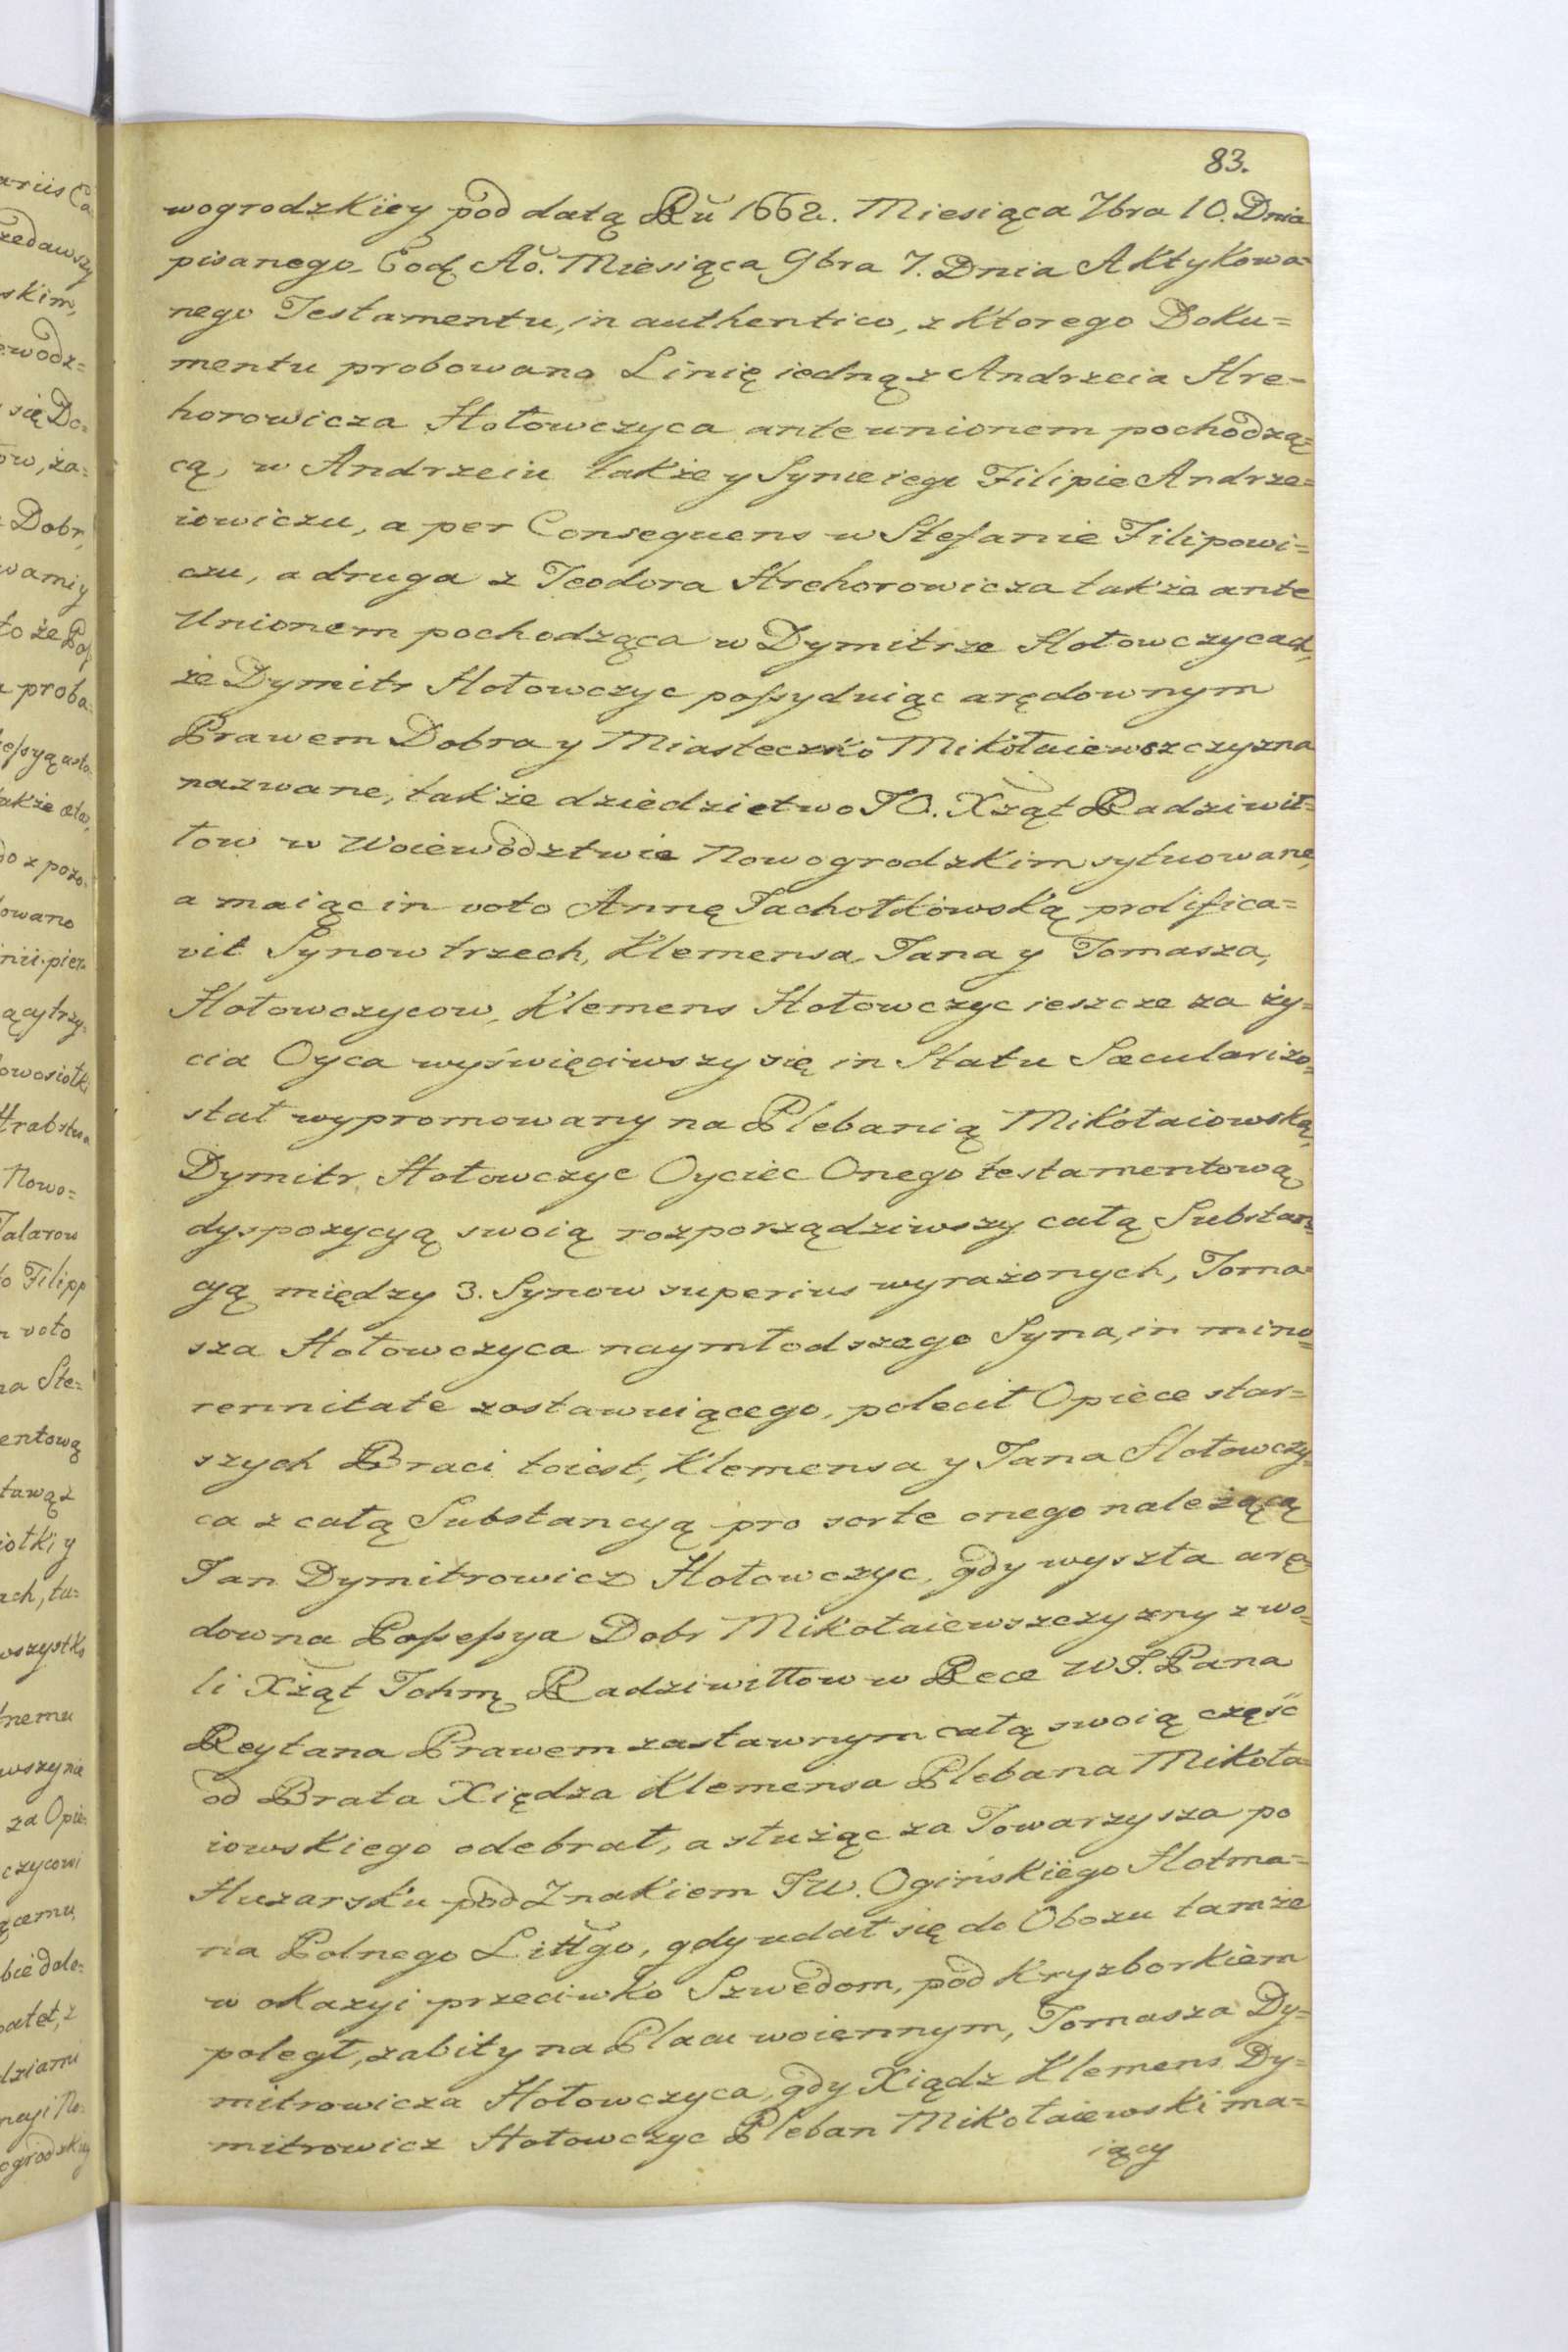 83.
wogrodzkiey pod datą Ru 1662. Miesiąca 7bra 10. Dnia
pisanego Eodę Ao. Miesiąca 9bra 7. Dnia Aktykowa=
nego Testamentu, in authentico, z ktorego Doku=
mentu probowano Linię iedną z Andrzeia Hre=
horowicza Hołowczyca ante unionem pochodzą=
cą, w Andrzeiu także y Synie iego Filipie Andrze=
iowiczu, a per Consequens w Stefanie Filipowi=
czu, a druga z Teodora Hrehorowicza także ante
Unionem pochodząca w Dymitrze Hołowczycach,
że Dymitr Hołowczyc possyduiąc arędownym
Prawem Dobra y Miasteczko Mikołaiewszczyzna
nazwane, także dziedzictwo JO. Xżąt Radziwił=
łow w Woiewodztwie Nowogrodzkim sytuowane,
a maiąc in voto Annę Jachołkowską prolifica=
vit Synow trzech, Klemensa, Jana y Tomasza,
Hołowczycow, Klemens Hołowczyc ieszcze za ży=
cia Oyca wyświęciwszy się in Statu Sæculari zo=
stał wypromowany na Plebanią Mikołaiowską,
Dymitr Hołowczyc Oyciec Onego testamentową
dyspozycyą swoią rozporządziwszy całą Substan=
cyą między 3. Synow superius wyrażonych, Toma=
sza Hołowczyca naymłodszego Syna, in mino=
rennitate zostawuiącego, polecił Opiece star=
szych Braci toiest, Klemensa y Jana Hołowczy=
ca z całą Substancyą pro sorte onego należącą
Jan Dymitrowicz Hołowczyc, gdy wyszła arę=
downa Possessya Dobr Mikołaiewszczyzny z wo=
li Xżąt Ichmę Radziwiłłow w Ręce WJ. Pana
Reytana Prawem zastawnym całą swoią część
od Brata Xiędza Klemensa Plebana Mikoła=
iowskiego odebrał, a służąc za Towarzysza po
Huzarsku pod Znakiem JW. Ogińskiego Hetma=
na Polnego Littgo, gdy udał się do Obozu tamże
w okazyi przeciwko Szwedom, pod Kryzborkiem
poległ, zabity na Placu woiennym, Tomasza Dy=
mitrowicza Hołowczyca, gdy Xiądz Klemens Dy=
mitrowicz Hołowczyc Pleban Mikołaiewski ma=
iący